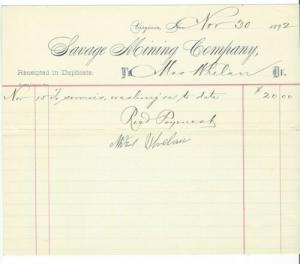 Virginia, Nev Nov 30 1892
Savage Mining Company,
Receipted in Duplicate. To Mrs Whelan Dr.
Nov To services, washing to date $20 00
Recd Payment
Mrs Whelan